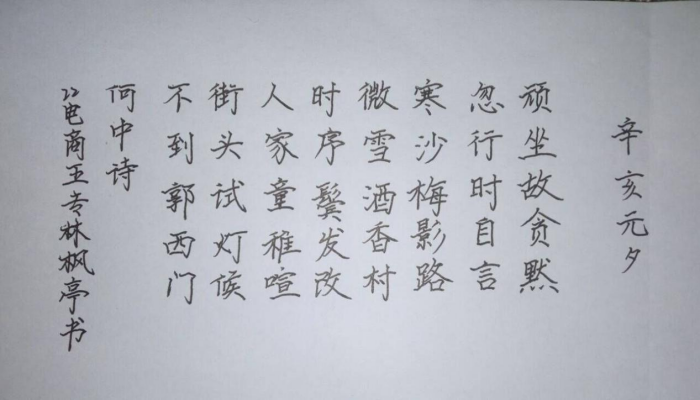 辛亥元夕
顽坐故贪默
忽行时自言
寒沙梅影路
微雪酒香村
时序鬓发改
人家童稚喧
街头试灯候
不到郭西门
何中诗
22电商王专林枫亭书